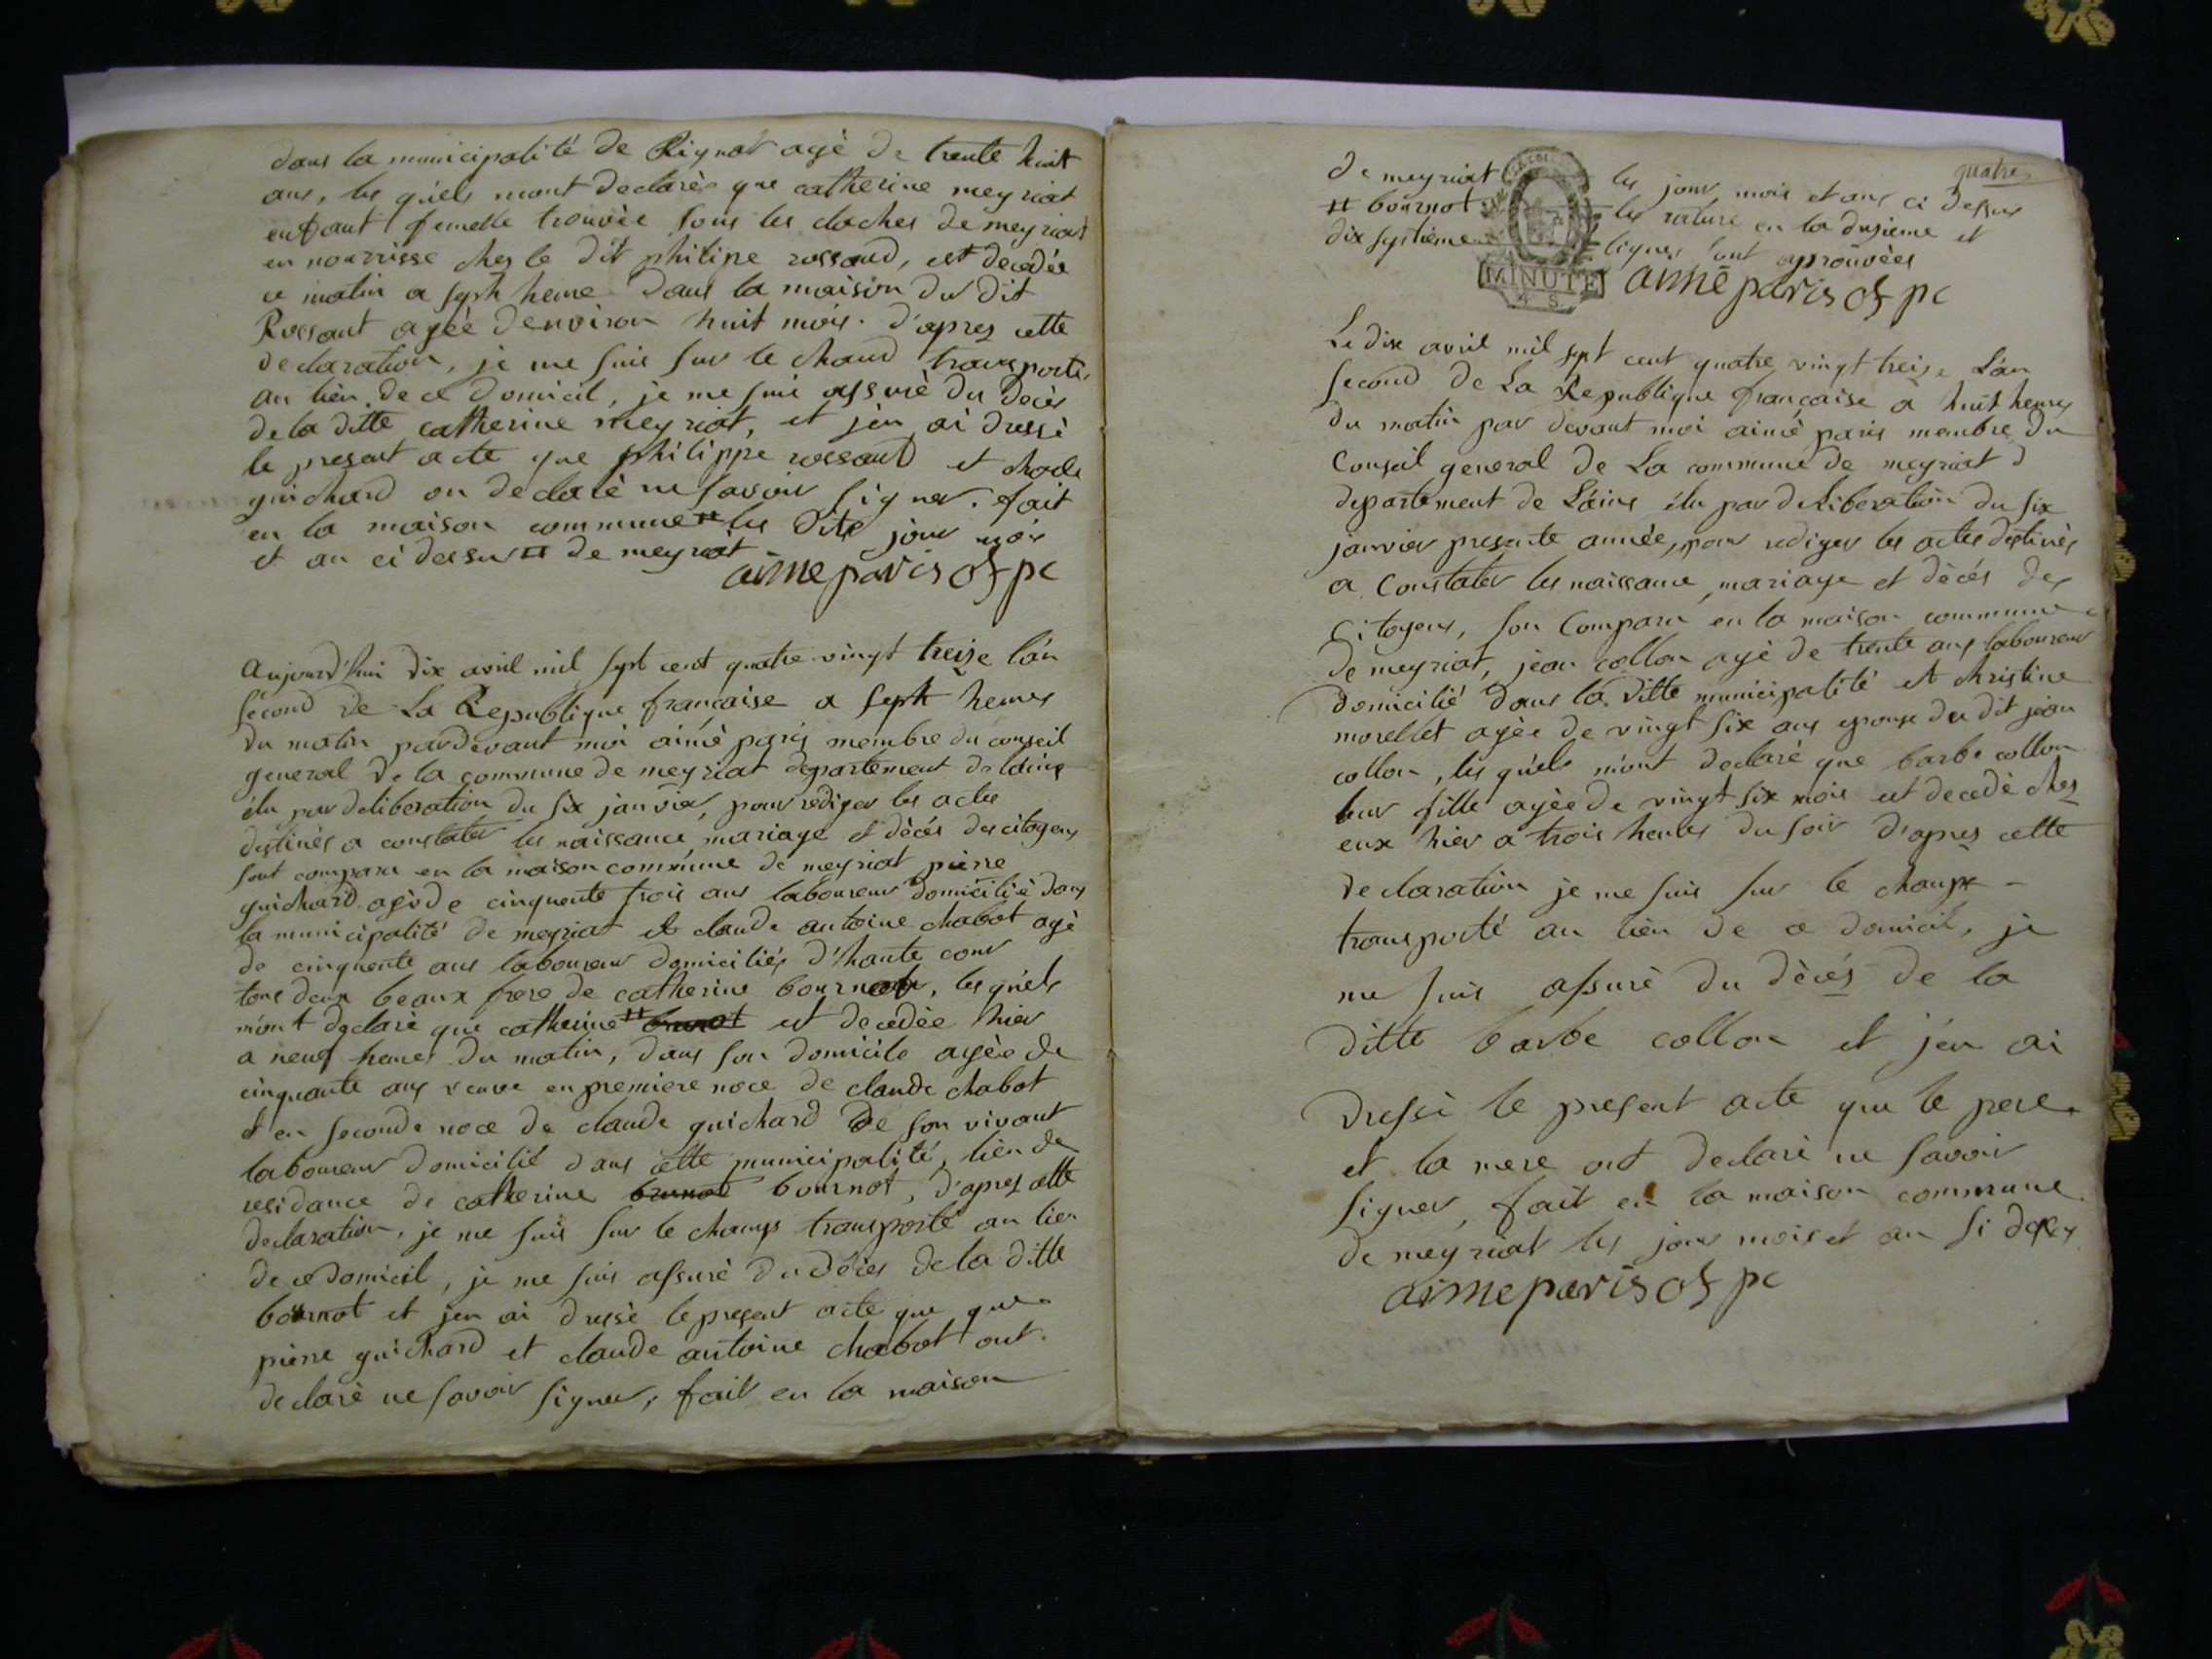 dans la municipalité de Rignat agé de trente huit
ans, les quéls mont declarés que catherine meyriat
enfant femelle trouvèe sous les cloches de meyriat
en nourrisse ches le dit philipe rossand, est decedée
ce matin a sept heure dans la maison du dit
Rossant agée denviron huit mois. d'apres cette
declaration, je me suis sur le chand transporté
au lieu de ce domicil, je me suis assuré du decès
de la ditte catherine meyriat, et j'en ai dressé
le present acte que philippe rossand et
guichard on declaré ne savoir signer. fait
en la maison commune # les dits jour mois
et an ci dessu # de meyriat
aimeparis of pc
aujourd'hui dix avril mil sept cent quatre vingt treize l'an
second de La Republique française a sept heures
du matin pardevant moi aimé paris membre du conseil
general de la commune de meyriat departement de l'aine
élu par deliberation du six janvier, pour rediger les actes
destinés a constater les naissance, mariage et dècés des citoyens
sont comparu en la maison commune de meyriat pierre
guichard agé de cinquente trois ans laboureur domicilié dans
la municipalité de meyriat et claude antoine chabot agé
de cinquente ans laboureur domiciliés d'haute cour
tous deux beaux frere de catherine bournot, les quéls
mont declaré que catherine # brunot est decedèe hier
a neuf heures du matin, dans son domicile agèe de
cinquante ans veuve en premiere noce de claude chabot
et en seconde noce de claude guichard de son vivant
laboureur domicilié dans cette municipalité, lieu de
residance de catherine brunot bournot, d'apres cette
declaration, je me suis sur le champs transporté au lieu
de ce domicil, je me suis assuré du décès de la ditte
bournot et jen ai dressé le present acte que que
pierre guichard et claude antoine chabot ont
declaré ne savoir signer, fait en la maison
quatre
de meyriat les jour mois et ans ci dessus
# bournot les rature en la dusieme et
dix septième lignes sont aprouvées
MINUTE
4 S.
aimé paris of pc
Le dix avril mil sept cent quatre vingt treise L'an
second de La Republique francaise à huit heures
du matin par devant moi aimé paris membre du
Conseil general de La commune de meyriat d
departement de L'aine élu par deliberation du six
janvier presente année, pour rediger les actes destinés
a Constater les naissance, mariage et dècés des
Citoyens, son Comparu en la maison commune
de meyriat, jean collon agé de trente ans laboureur
domicilié dans la ditte municipalité et christine
morellet agèe de vingt six ans epouse du dit jean
collon, les quéls m'ont declaré que barbe collon
leur fille agèe de vingt six mois est decedè ches
eux hier a trois heures du soir d'apres cette
declaration je me suis sur le champs -
transporté au lieu de ce domicil, je
me suis assuré du dècés de la
ditte barbe collon et j'en ai
dressé le present acte que le pere
et la mere ont declaré ne savoir
signer, fait en la maison commune
de meyriat les jour mois et an si desus
aimeparis of pc